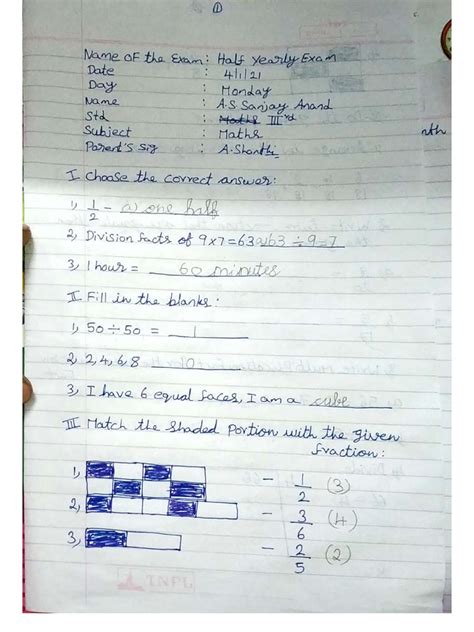 ①
Name of the Exam : Half Yearly Exam
Date : 4/1/21
Day : Monday
Name : A.S Sanjay Anand
Std : Maths III rd
Subject : Maths
Parent's Sig : A. Shanthi
I Choose the correct answer:
1, 1/2 - a) one half
2, Division facts of 9x7=63 a) 63 ÷ 9 = 7
3, 1 hour = 60 minutes
II Fill in the blanks :
1, 50 ÷ 50 = 1
2, 2, 4, 6, 8 10
3, I have 6 equal faces, I am a cube
III Match the shaded portion with the given
fraction:
1, - 1/2 (3)
2, - 3/6 (4)
3, - 2/5 (2)
TNPL